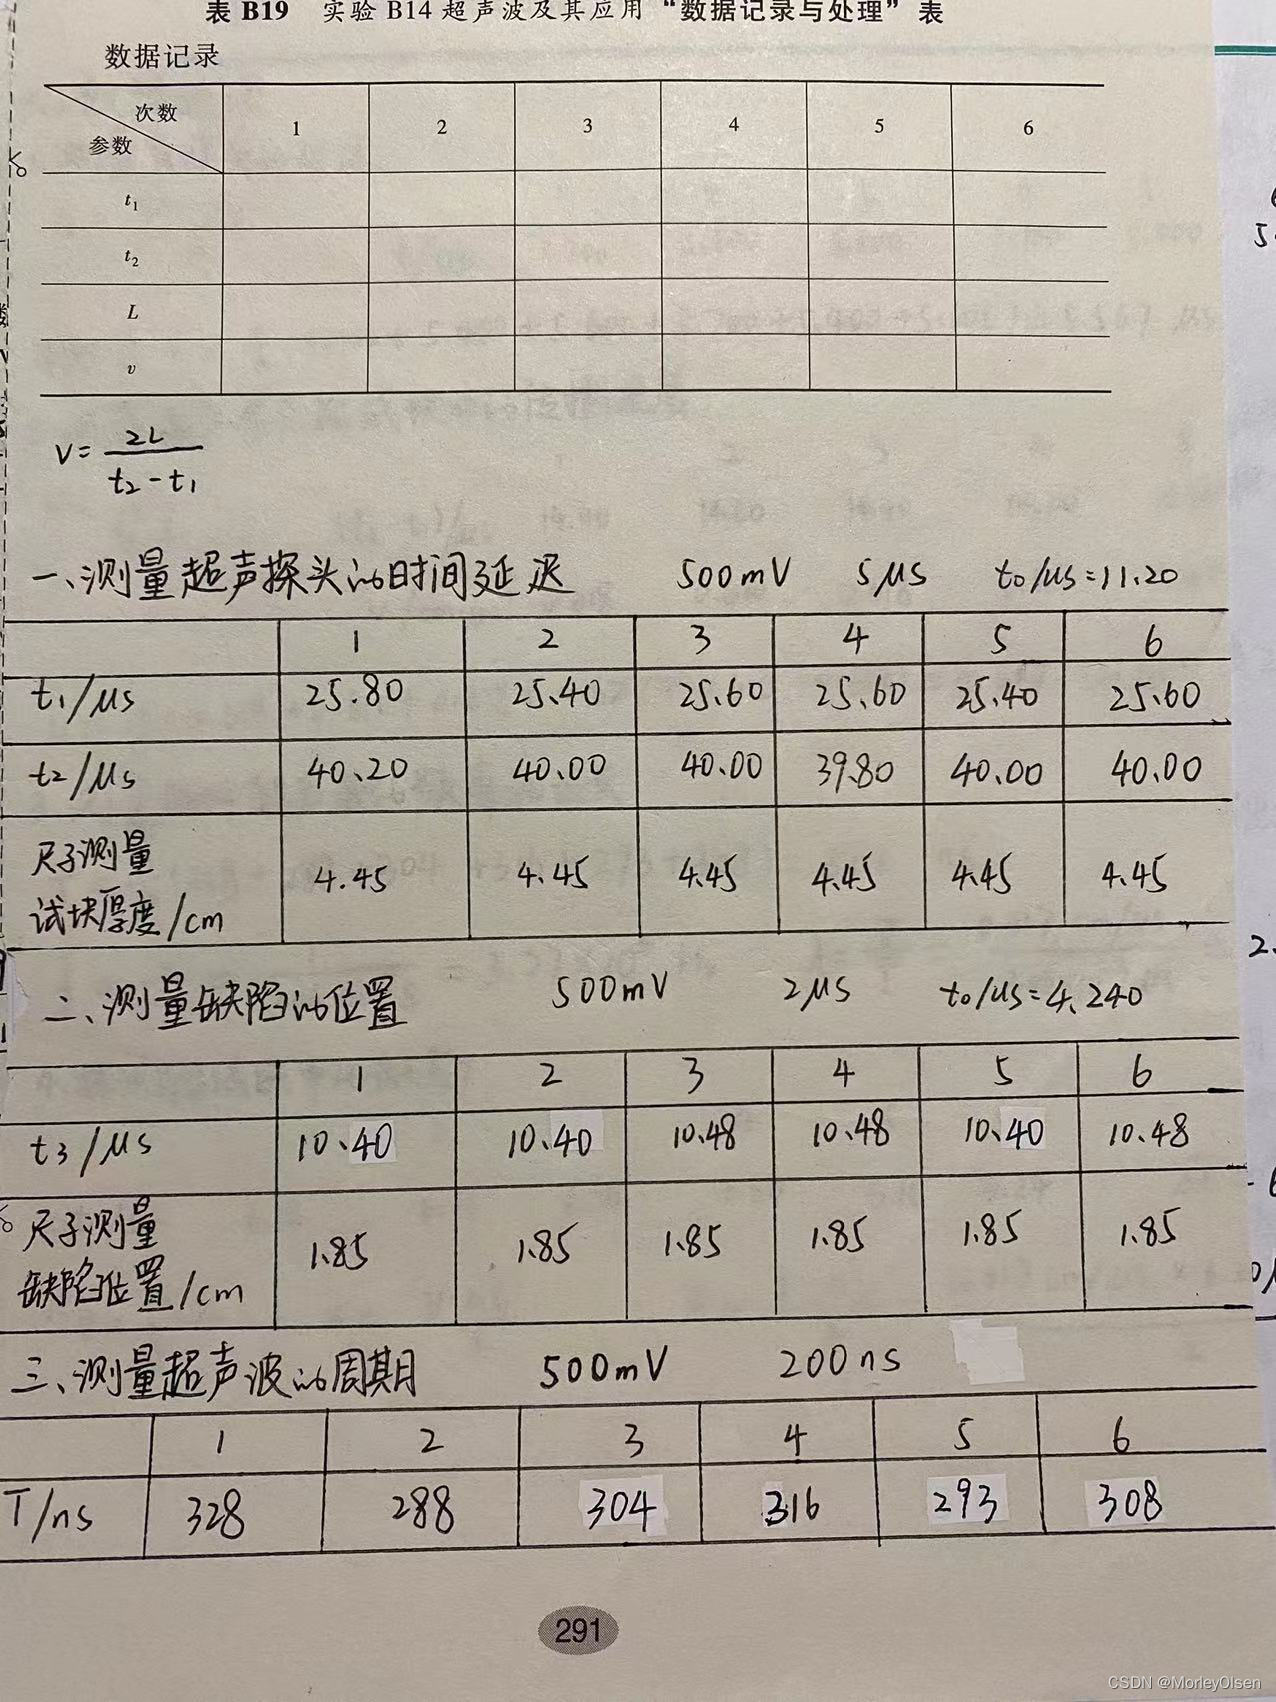 表 B19 实验 B14 超声波及其应用 “数据记录与处理” 表
数据记录
次数 参数 1 2 3 4 5 6
t₁
t₂
L
v
v= 2L / t₂-t₁
一、测量超声探头的时间延迟 500mV 5μs t₀/μs=11.20
1 2 3 4 5 6
t₁/μs 25.80 25.40 25.60 25.60 25.40 25.60
t₂/μs 40.20 40.00 40.00 39.80 40.00 40.00
尺子测量
试块厚度/cm 4.45 4.45 4.45 4.45 4.45 4.45
二、测量缺陷的位置 500mV 2μs t₀/μs=4.240
1 2 3 4 5 6
t₃/μs 10.40 10.40 10.48 10.48 10.40 10.48
尺子测量
缺陷位置/cm 1.85 1.85 1.85 1.85 1.85 1.85
三、测量超声波的周期 500mV 200ns
1 2 3 4 5 6
T/ns 328 288 304 316 293 308
291
CSDN @MorleyOlsen